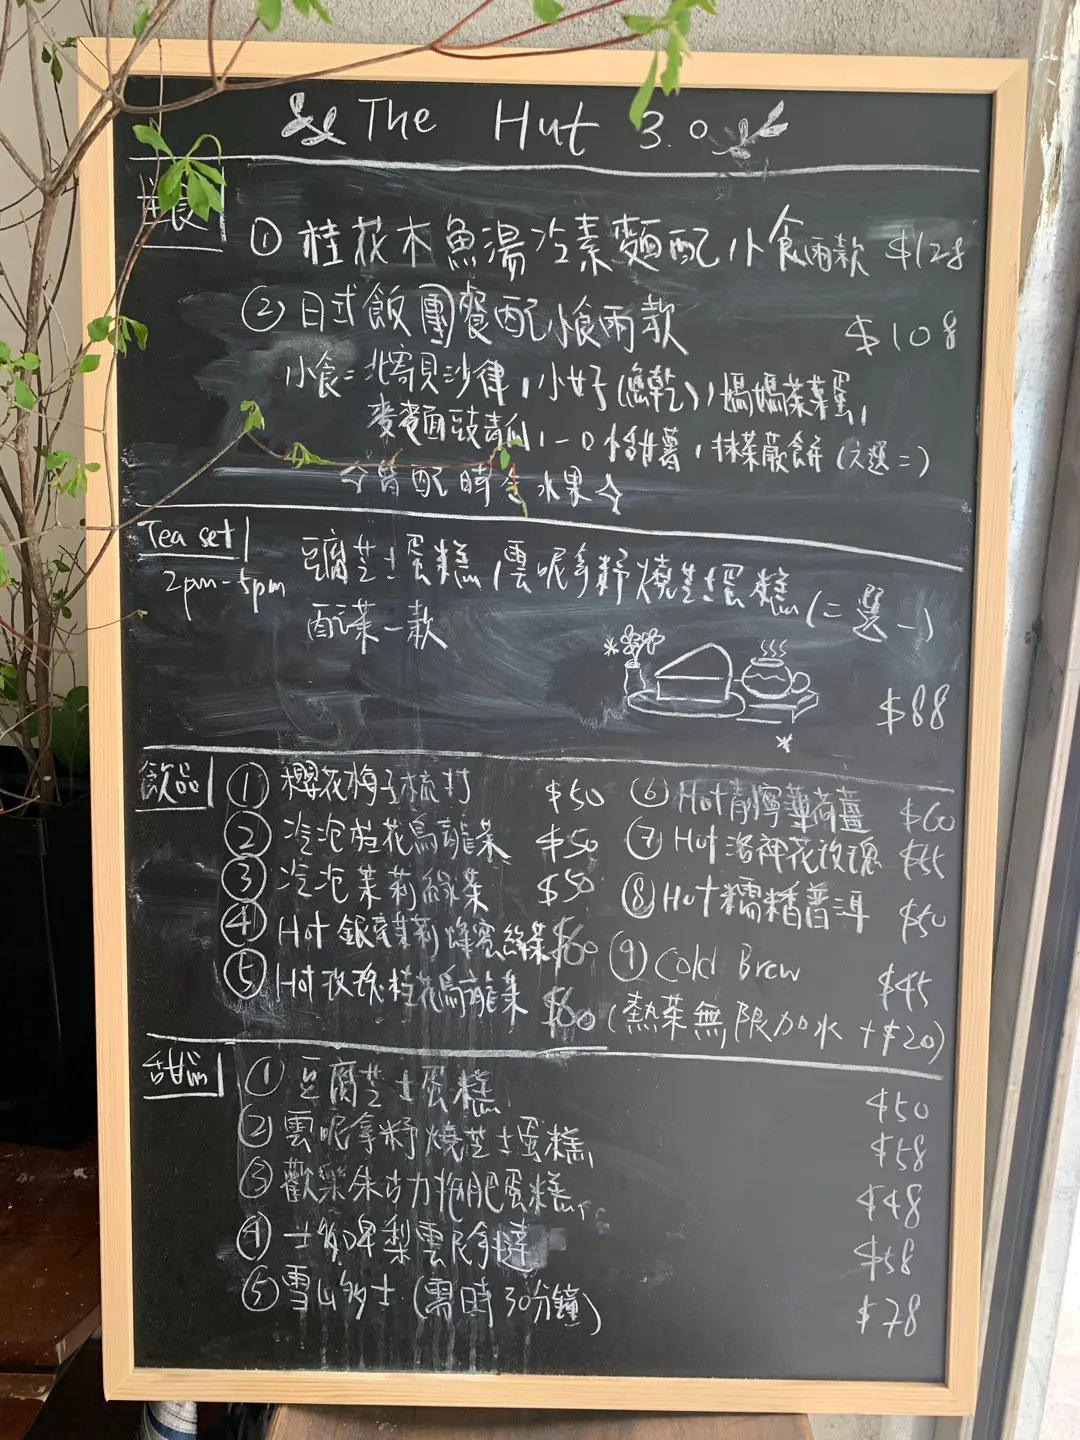 The Hut 3.0
食
① 桂花木魚湯冷素麵配小食兩款 $128
② 日式飯團餐配小食兩款 $108
小食= 北寄貝沙律, 小好(魚乾), 媽媽茶葉蛋,
麥麵豉青瓜, 一口 甘薯, 抹茶蕨餅 (六選二)
☆皆配時令水果☆
Tea set
2pm-5pm
豆腐芝士蛋糕 / 雲呢拿籽燒芝士蛋糕 (二選一)
配茶一款
$88
飲品
① 櫻花梅子梳打 $50
② 冷泡桂花烏龍茶 $50
③ 冷泡茉莉綠茶 $50
④ Hot 銀毫茉莉蜂蜜綠茶 $60
⑤ Hot 玫瑰桂花烏龍茶 $60
⑥ Hot 青檸薄荷薑 $60
⑦ Hot 洛神花玫瑰 $55
⑧ Hot 糯糬普洱 $50
⑨ Cold Brew $45
(熱茶無限加水 +$20)
甜品
① 豆腐芝士蛋糕 $50
② 雲呢拿籽燒芝士蛋糕 $58
③ 歡樂朱古力拖肥蛋糕 $48
④ 士多啤梨雲呢拿撻 $58
⑤ 雪山多士 (需時30分鐘) $78